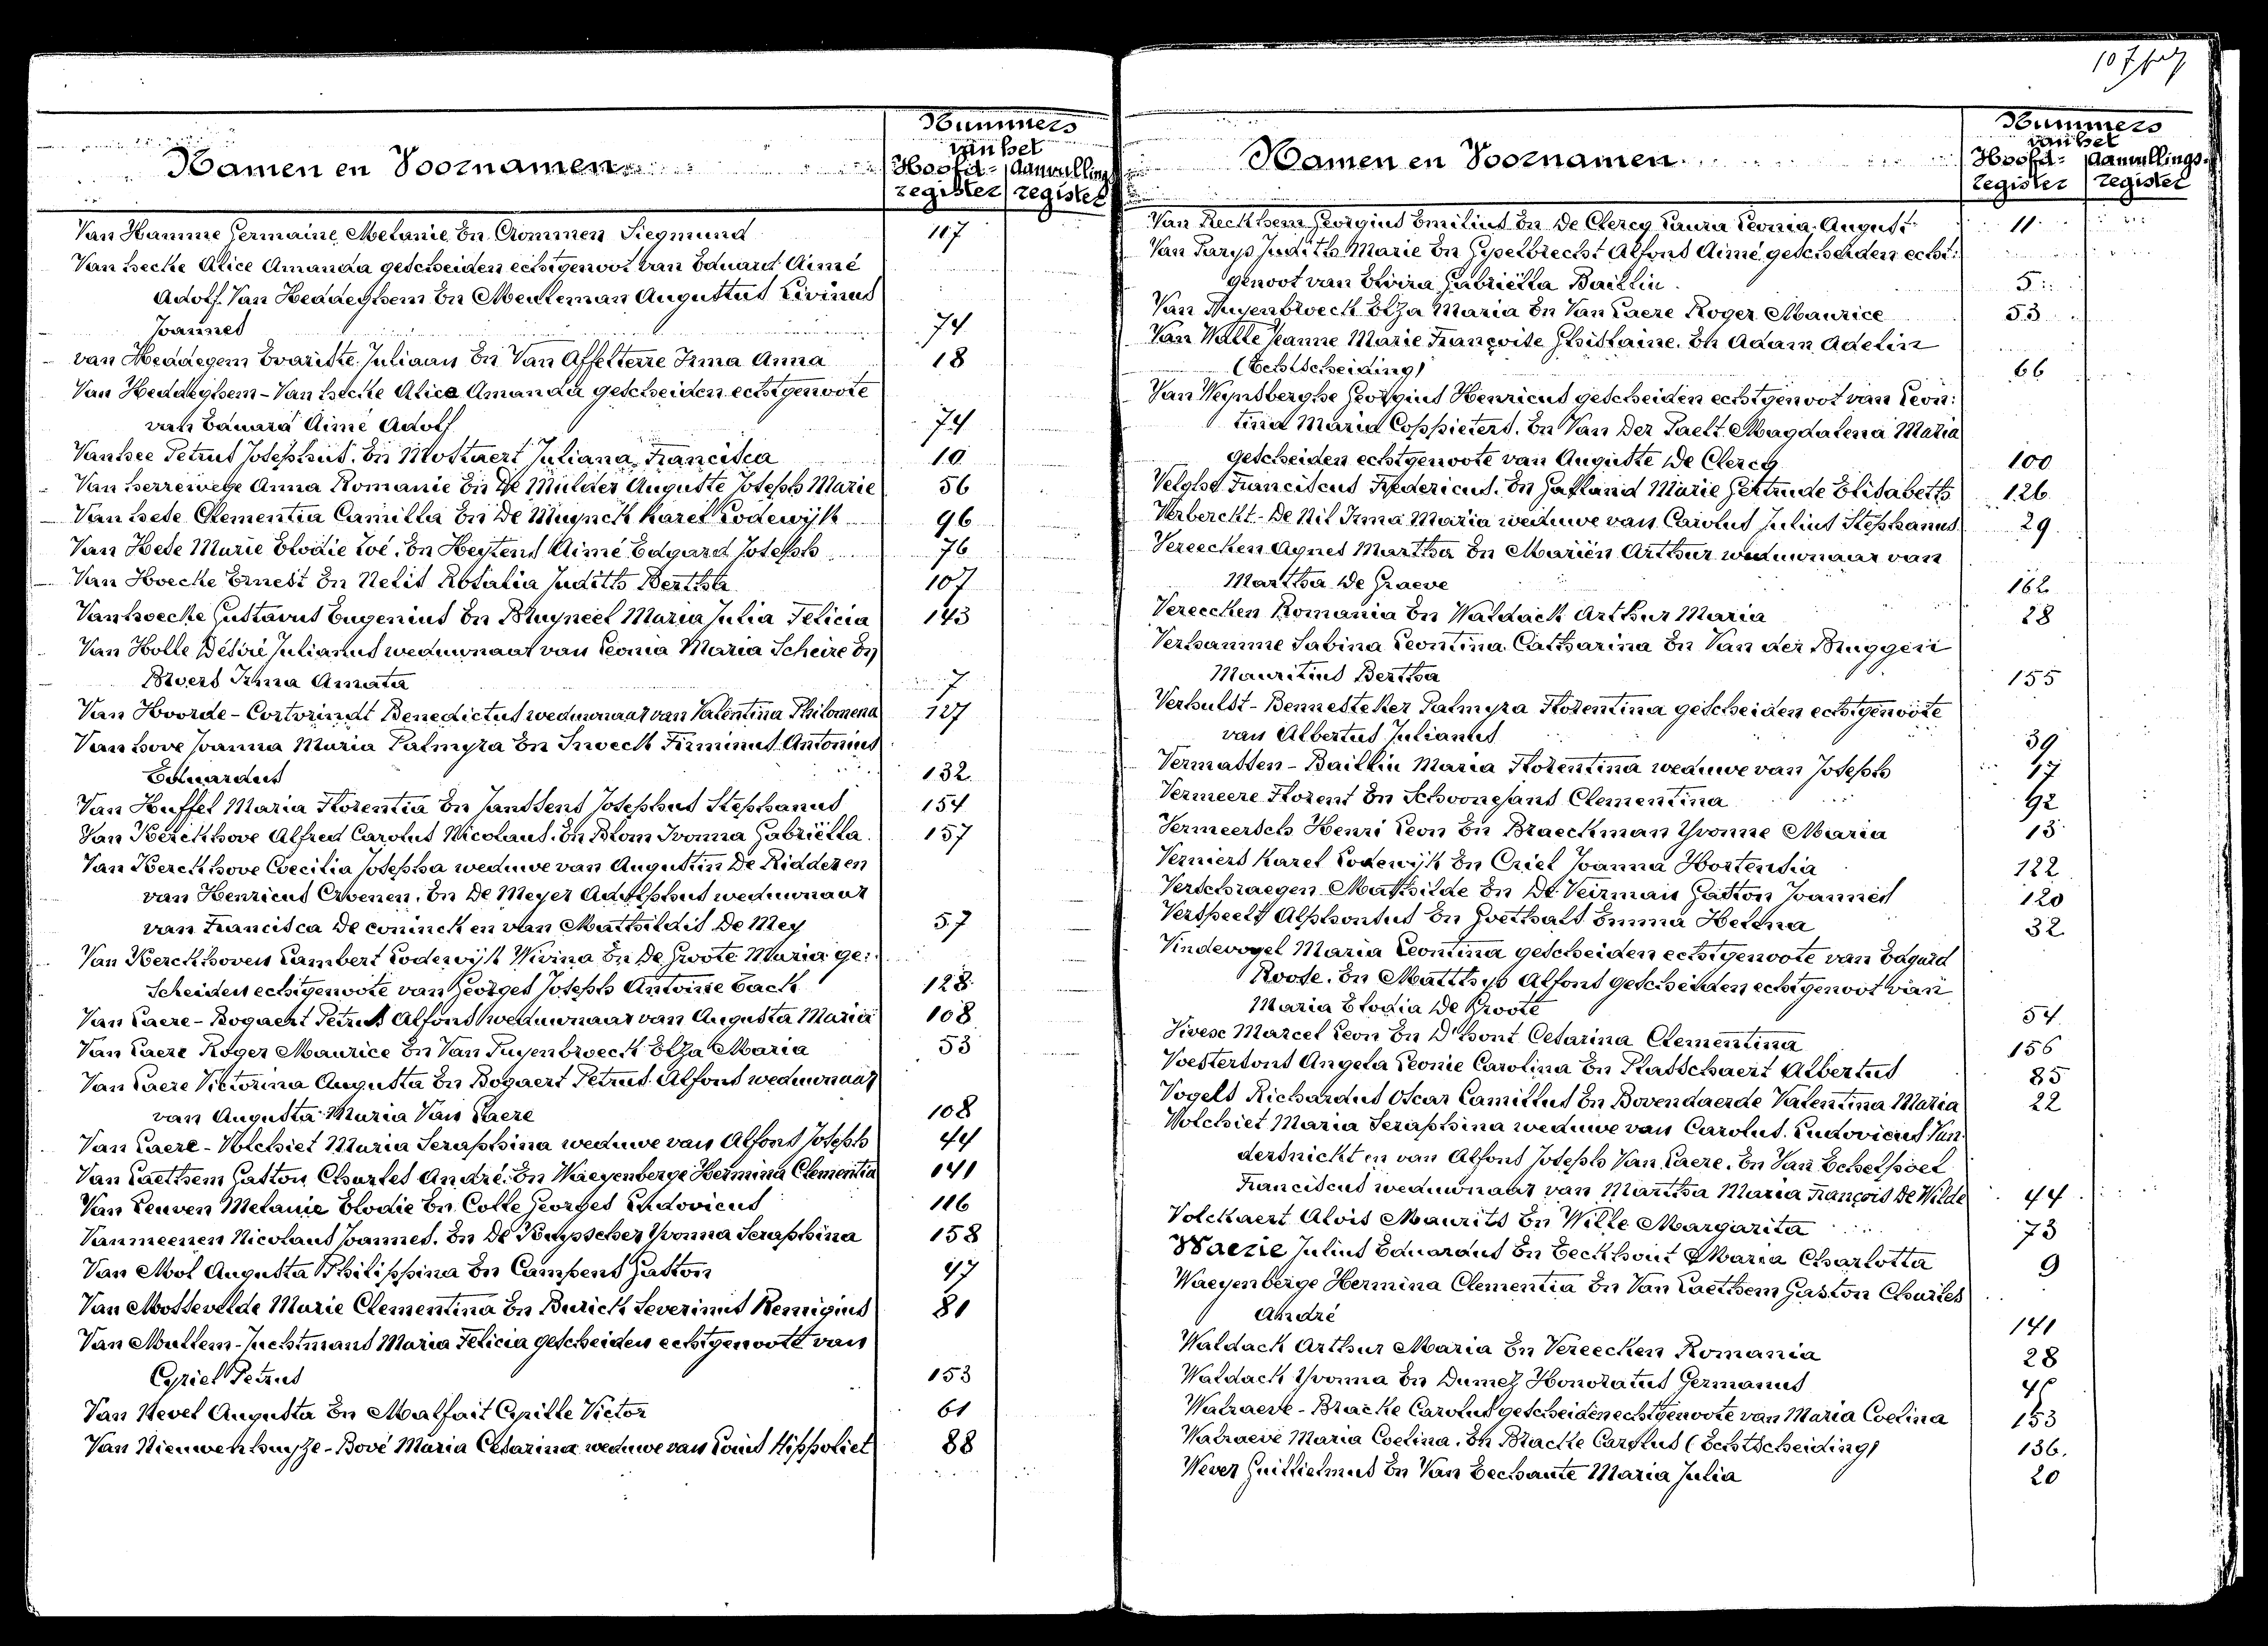 Namen en Voornamen
Nummers
van het
Hoofd- Aanvullings
register register
Van Hamme Germaine Melanie En Crommen Siegmund 117
Van hecke Alice Amanda gescheiden echtgenoot van Eduard Aimé
Adolf Van Heddeghem En Meuleman Augustus Livinus
Joannes 74
van Heddegem Evariste Juliaan En Van Affelterre Irma Anna 18
Van Heddeghem - Van hecke Alice Amanda gescheiden echtgenoote
van Eduard Aimé Adolf 74
Vanhee Petrus Josephus. En Mostaert Juliana Francisca 10
Van herrewege Anna Romanie En De Mulder Auguste Joseph Marie 56
Van hese Clementia Camilla En De Muynck Karel Lodewijk 96
Van Hese Marie Elodie Zoé. En Heytens Aimé Edgard Joseph 76
Van Hoecke Ernest En Nelis Rosalia Judith Bertha 107
Vanhoecke Gustavus Eugenius En Bruyneel Maria Julia Felicia 143
Van Holle Désiré Julianus weduwnaar van Leonia Maria Scheire En
Broers Irma Amata 7
Van Hoorde - Cortvrindt Benedictus weduwnaar van Valentina Philomena 127
Van hove Joanna Maria Palmyra En Snoeck Firminus Antonius
Eduardus 132
Van Huffel Maria Florentia En Janssens Josephus Stephanus 154
Van Kerckhove Alfred Carolus Nicolaus. En Blom Ivonna Gabriëlla 157
Van Kerckhove Coecilia Josepha weduwe van Augustin De Ridder en
van Henricus Croenen. En De Meyer Adolphus weduwnaar
van Francisca De coninck en van Mathildis De Mey 57
Van Kerckhoven Lambert Lodewijk Wivina En De Groote Maria ge:
scheiden echtgenoote van Georges Joseph Antoine Back 128
Van Laere - Bogaert Petrus Alfons weduwnaar van Augusta Maria 108
Van Laere Roger Maurice En Van Puyenbroeck Elza Maria 53
Van Laere Victorina Augusta En Bogaert Petrus Alfons weduwnaar
van Augusta Maria Van Laere 108
Van Laere - Volchiet Maria Seraphina weduwe van Alfons Joseph 44
Van Laethem Gaston Charles André. En Waeyenberge Hermina Clementia 141
Van Leuven Melanie Elodie En Colle Georges Ludovicus 116
Vanmeenen Nicolaus Joannes. En De Buysscher Yvonna Seraphina 158
Van Mol Augusta Philippina En Campens Gaston 47
Van Mossevelde Marie Clementina En Burick Severinus Remigius 81
Van Mullem - Juchtmans Maria Felicia gescheiden echtgenoote van
Cyriel Petrus 153
Van Nevel Augusta En Malfait Cyrille Victor 61
Van Nieuwenhuyze - Bové Maria Cesarina weduwe van Louis Hippoliet 88
107
Namen en Voornamen
Nummers
van het
Hoofd- Aanvullings-
register register
Van Georgius Emilius En De Clercq Laura Leonia August 11
Van Parys Judith Marie En Gyselbrecht Alfons Aimé gescheiden echt:
genoot van Elvira Gabriëlla Baillin 5
Van Puyenbroeck Elza Maria En Van Laere Roger Maurice 53
Van Walle Jeanne Marie Françoise Ghislaine. En Adam Adelin
(Echtscheiding) 66
Van Weynsberghe Georgius Henricus gescheiden echtgenoot van Leon:
tina Maria Coppieters. En Van Der Paelt Magdalena Maria
gescheiden echtgenoote van Auguste De Clercq 100
Velghe Franciscus Fredericus. En Marie Gertrude Elisabeth 126
Verberckt - De Nil Irma Maria weduwe van Carolus Julius Stephanus 29
Vereecken Agnes Martha En Mariën Arthur weduwnaar van
Martha De Graeve 162
Vereecken Romania En Waldack Arthur Maria 28
Verhamme Sabina Leontina Catharina En Van der Bruggen
Mauritius Bertha 155
Verhulst - Bennesteker Palmyra Florentina gescheiden echtgenoote
van Albertus Julianus 39
Vermassen - Baillin Maria Florentina weduwe van Joseph 17
Vermeere Florent En Schoonejans Clementina 92
Vermeersch Henri Leon En Braeckman Yvonne Maria 13
Verniers Karel Lodewijk En Criel Joanna Hortensia 122
Verschraegen Mathilde En De Veirman Gaston Joannes 120
Verspeelt Alphonsus En Goethals Emma Helena 32
Vindevogel Maria Leontina gescheiden echtgenoote van Edgard
Roose. En Matthys Alfons gescheiden echtgenoot van
Maria Elodia De Groote 54
Vivese Marcel Leon En D'hont Cesarina Clementina 156
Voestersons Angela Leonie Carolina En Plasschaert Albertus 85
Vogels Richardus Oscar Camillus En Bovendaerde Valentina Maria 22
Volchiet Maria Seraphina weduwe van Carolus Ludovicus Van
dersnickt en van Alfons Joseph Van Laere. En Van Echelpoel
Franciscus weduwnaar van Martha Maria François De Wilde 44
Volckaert Alois Maurits En Wille Margarita 73
Waerie Julius Eduardus En Eeckhout Maria Charlotta 9
Waeyenberge Hermina Clementia En Van Laethem Gaston Charles
André 141
Waldack Arthur Maria En Vereecken Romania 28
Waldack Yvonna En Dumez Honoratus Germanus
Walraeve - Bracke Carolus gescheiden echtgenoote van Maria Coelina 153
Walraeve Maria Coelina. En Bracke Carolus (Echtscheiding) 136.
Wever Guillielmus En Van Eechaute Maria Julia 20